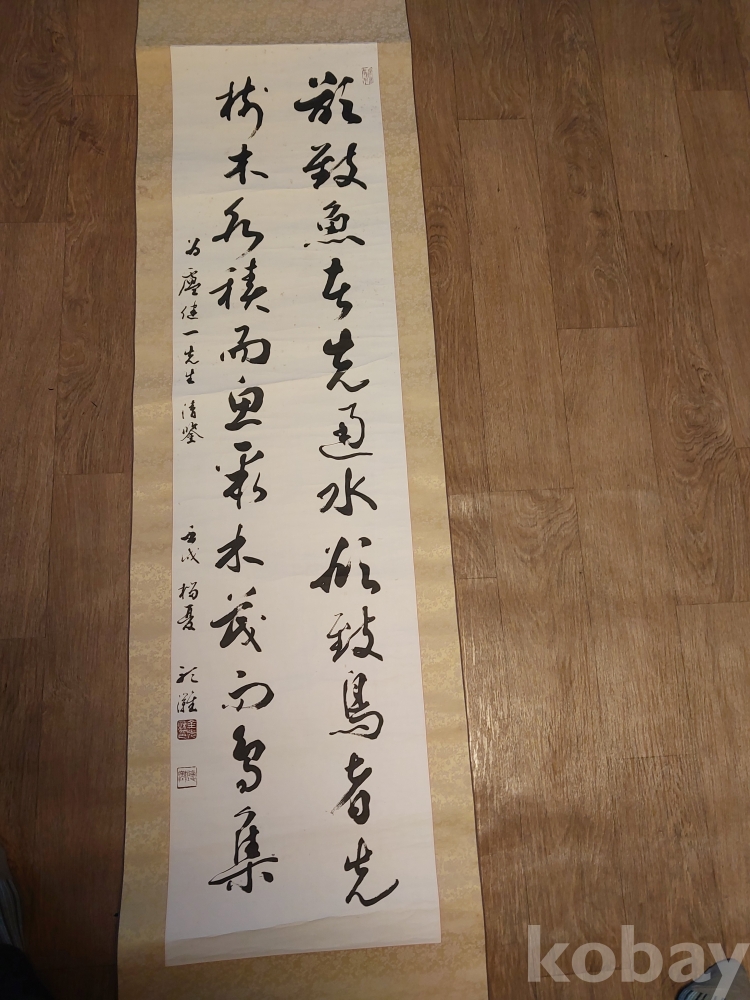 欲致魚者先通水欲致鳥者先
樹木水積而魚聚木茂而鳥集
為盧健一先生 清鑒
壬戌 楊夏
kobay